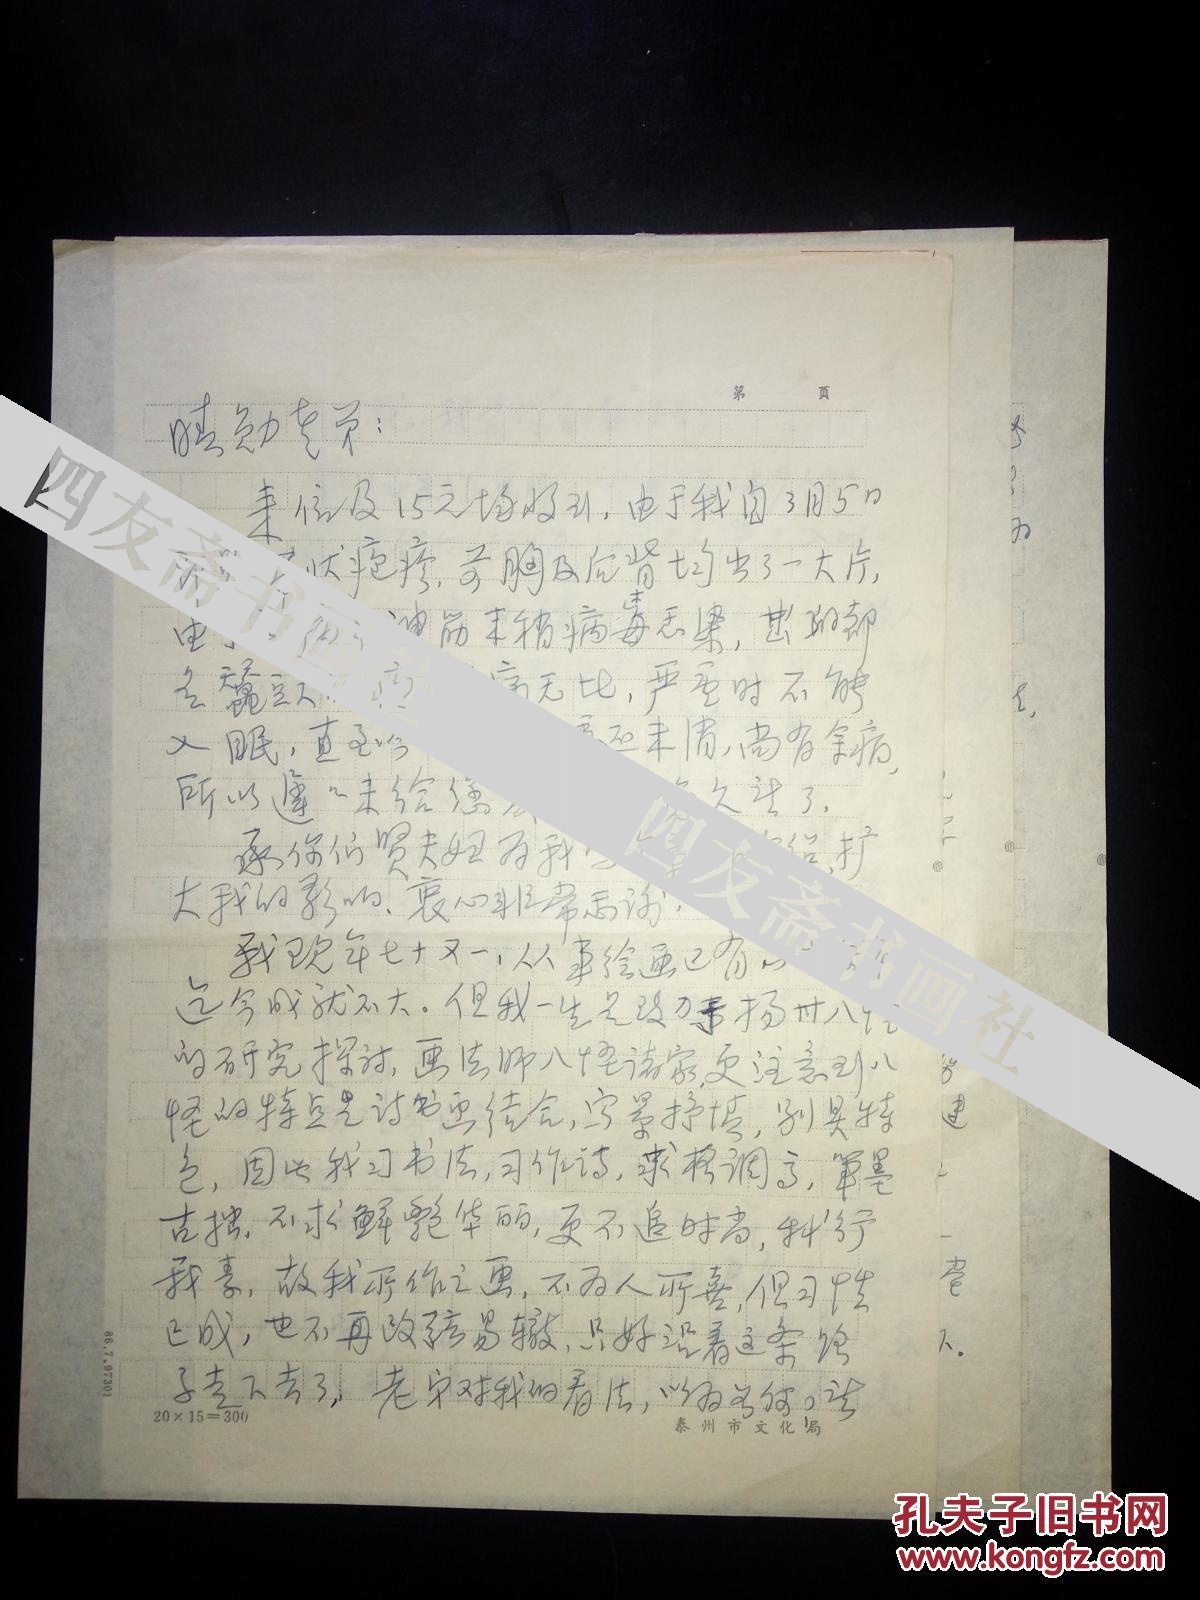 第 页
晴勋老弟：
来信及15元均收到，由于我自3月5日
状疱疹，前胸及后背均出了一大片，
由于 神经末稍病毒感染，出的都
是蚕豆大 痛无比，严重时不能
入眠，直至今 还未消，尚有余痛，
所以迟迟未给您 久谅了．
承你们贤夫妇为我 绍，扩
大我的影响、衷心非常感谢．
我现年七十又一，从事绘画已有
迄今成就不大。但我一生是致力于扬州八怪
的研究探讨，画法师八怪诸家，更注意到八
怪的特点是诗书画结合，写景抒情，别具特
色，因此我习书法，习作诗，求格调高，笔墨
古拙，不求鲜艳华丽，更不追时尚，我行
我素，故我所作之画，不为人所喜，但习性
已成，也不再改弦易辙，只好沿着这条路
子走下去了，老宋对我的看法，以为如何。请
20×15=300
泰州市文化局
86.7.97301
建
一
老
不。
四友斋书画社
四友斋书画社
孔夫子旧书网
www.kongfz.com